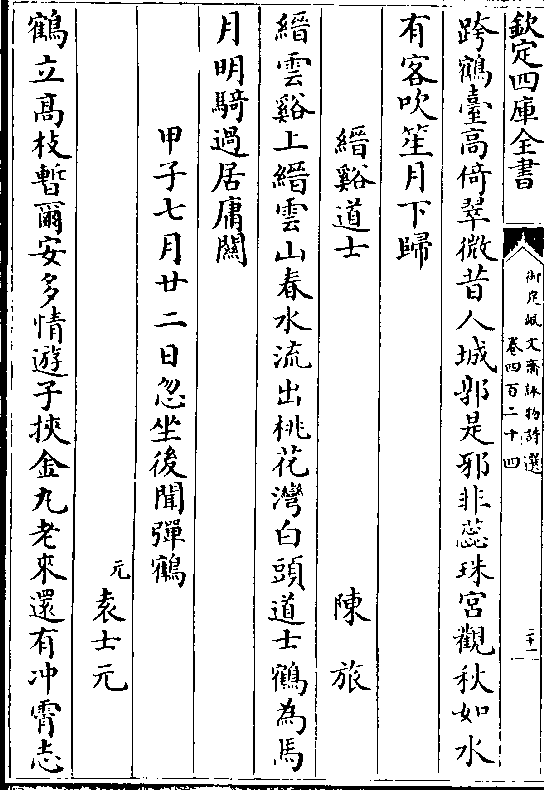 欽定四庫全書
御定佩文齋詠物詩選
卷四百二十四
二十一
跨鶴臺高倚翠微昔人城郭是邪非蕊珠宮觀秋如水
有客吹笙月下歸
縉谿道士
陳旅
縉雲谿上縉雲山春水流出桃花灣白頭道士鶴為馬
月明騎過居庸關
甲子七月廿二日忽坐後聞彈鶴
元
袁士元
鶴立高枝暫爾安多情遊子挾金丸老來還有冲霄志